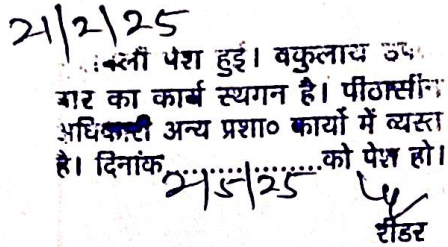 21/2/25
पेश हुई। वकुलाय उप
का कार्य स्थगन है। पीठासीन
अधिकारी अन्य प्रशा० कार्यो में व्यस्त
है। दिनांक..................को पेश हो।
2/5/25
रीडर